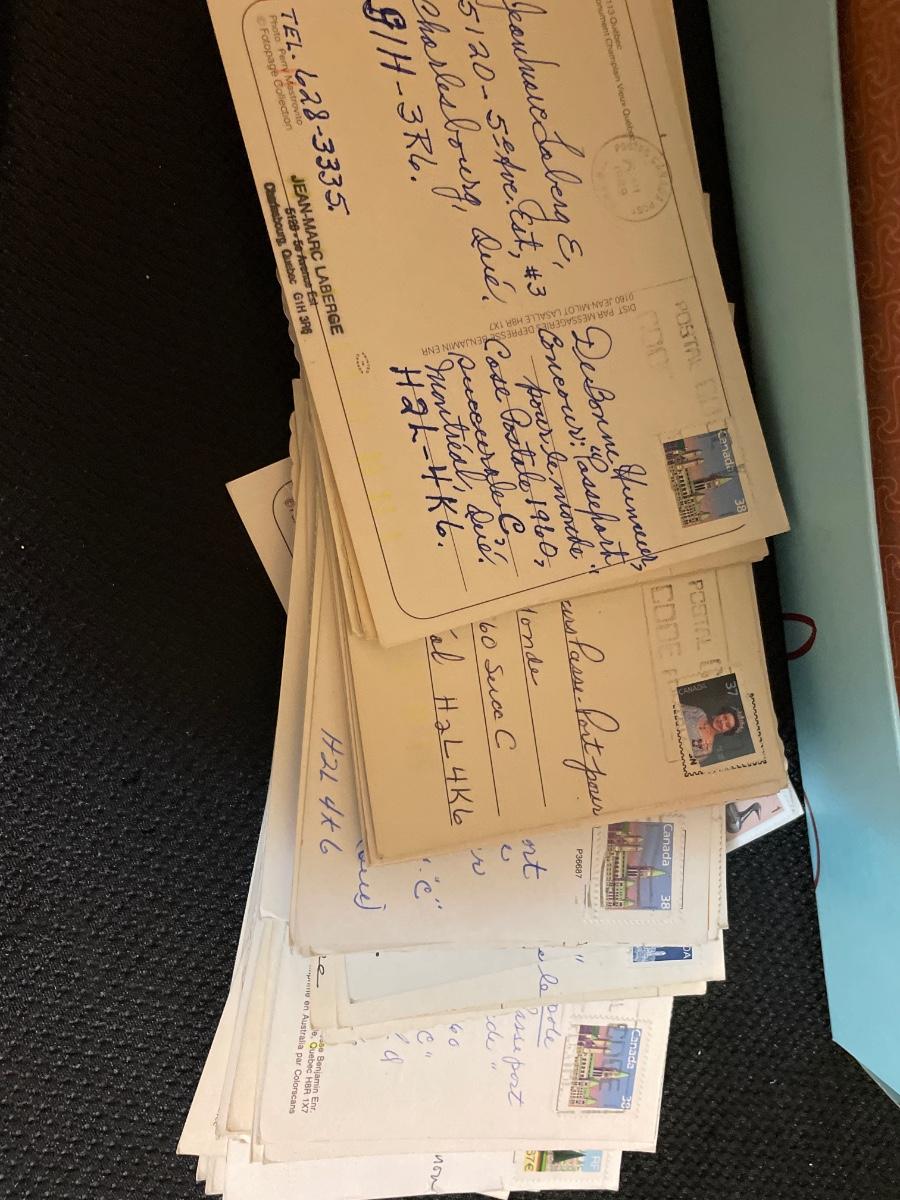 113 Québec
Monument Champlain Vieux Québec
Jean Marc Laberg E,
5120-5e Ave. Est, #3
Charlesbourg, Qué.
G1H-3R6.
TEL. 628-3335.
Photo Perry Mastrovito
© Fotopage Collection
JEAN-MARC LABERGE
5120 - 5e Avenue Est
Charlesbourg, Quebec G1H 3R6
DIST PAR MESSAGERIES DEPRESSE BENJAMIN ENR
9160 JEAN-MILOT LASALLE H8R 1X7
POSTAL
Canada 38
DuBonne Humeur,
Concours: "Passeport
pour le monde"
Case Postale 1960,
Succursale "C",
Montréal, Qué.
H2L-4K6.
POSTAL
CODE
CANADA 37
Passe-Port pour
monde
60 Succ C
al H2L4K6
H2L 4K6
"C"
nt
P36687
Canada 38
DA
le pole
asseport
de"
60
C"
Benjamin Enr.
Quebec H8R 1X7
en Australia par Colorscans
Canada 38
RF